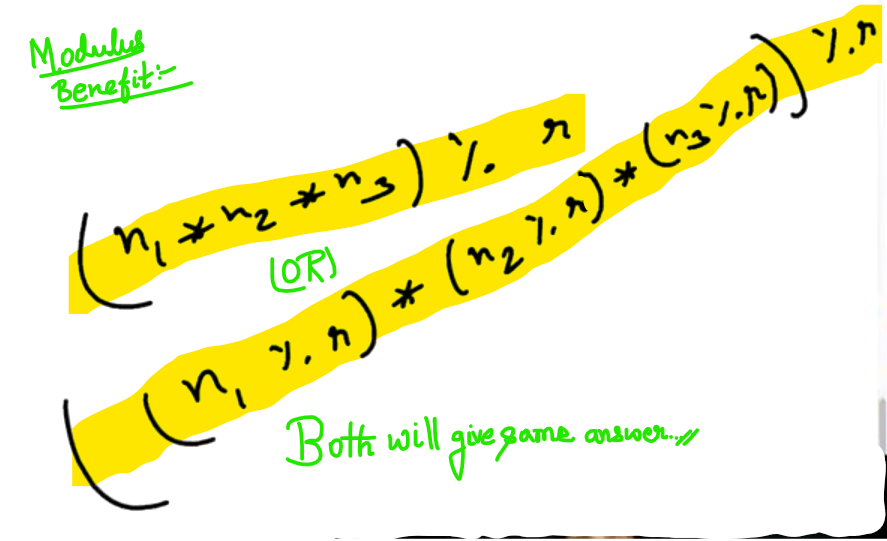 Modulus
Benefit:-
(n₁ * n₂ * n₃) % r
(OR)
((n₁ % r) * (n₂ % r) * (n₃ % r)) % r
Both will give same answer..//